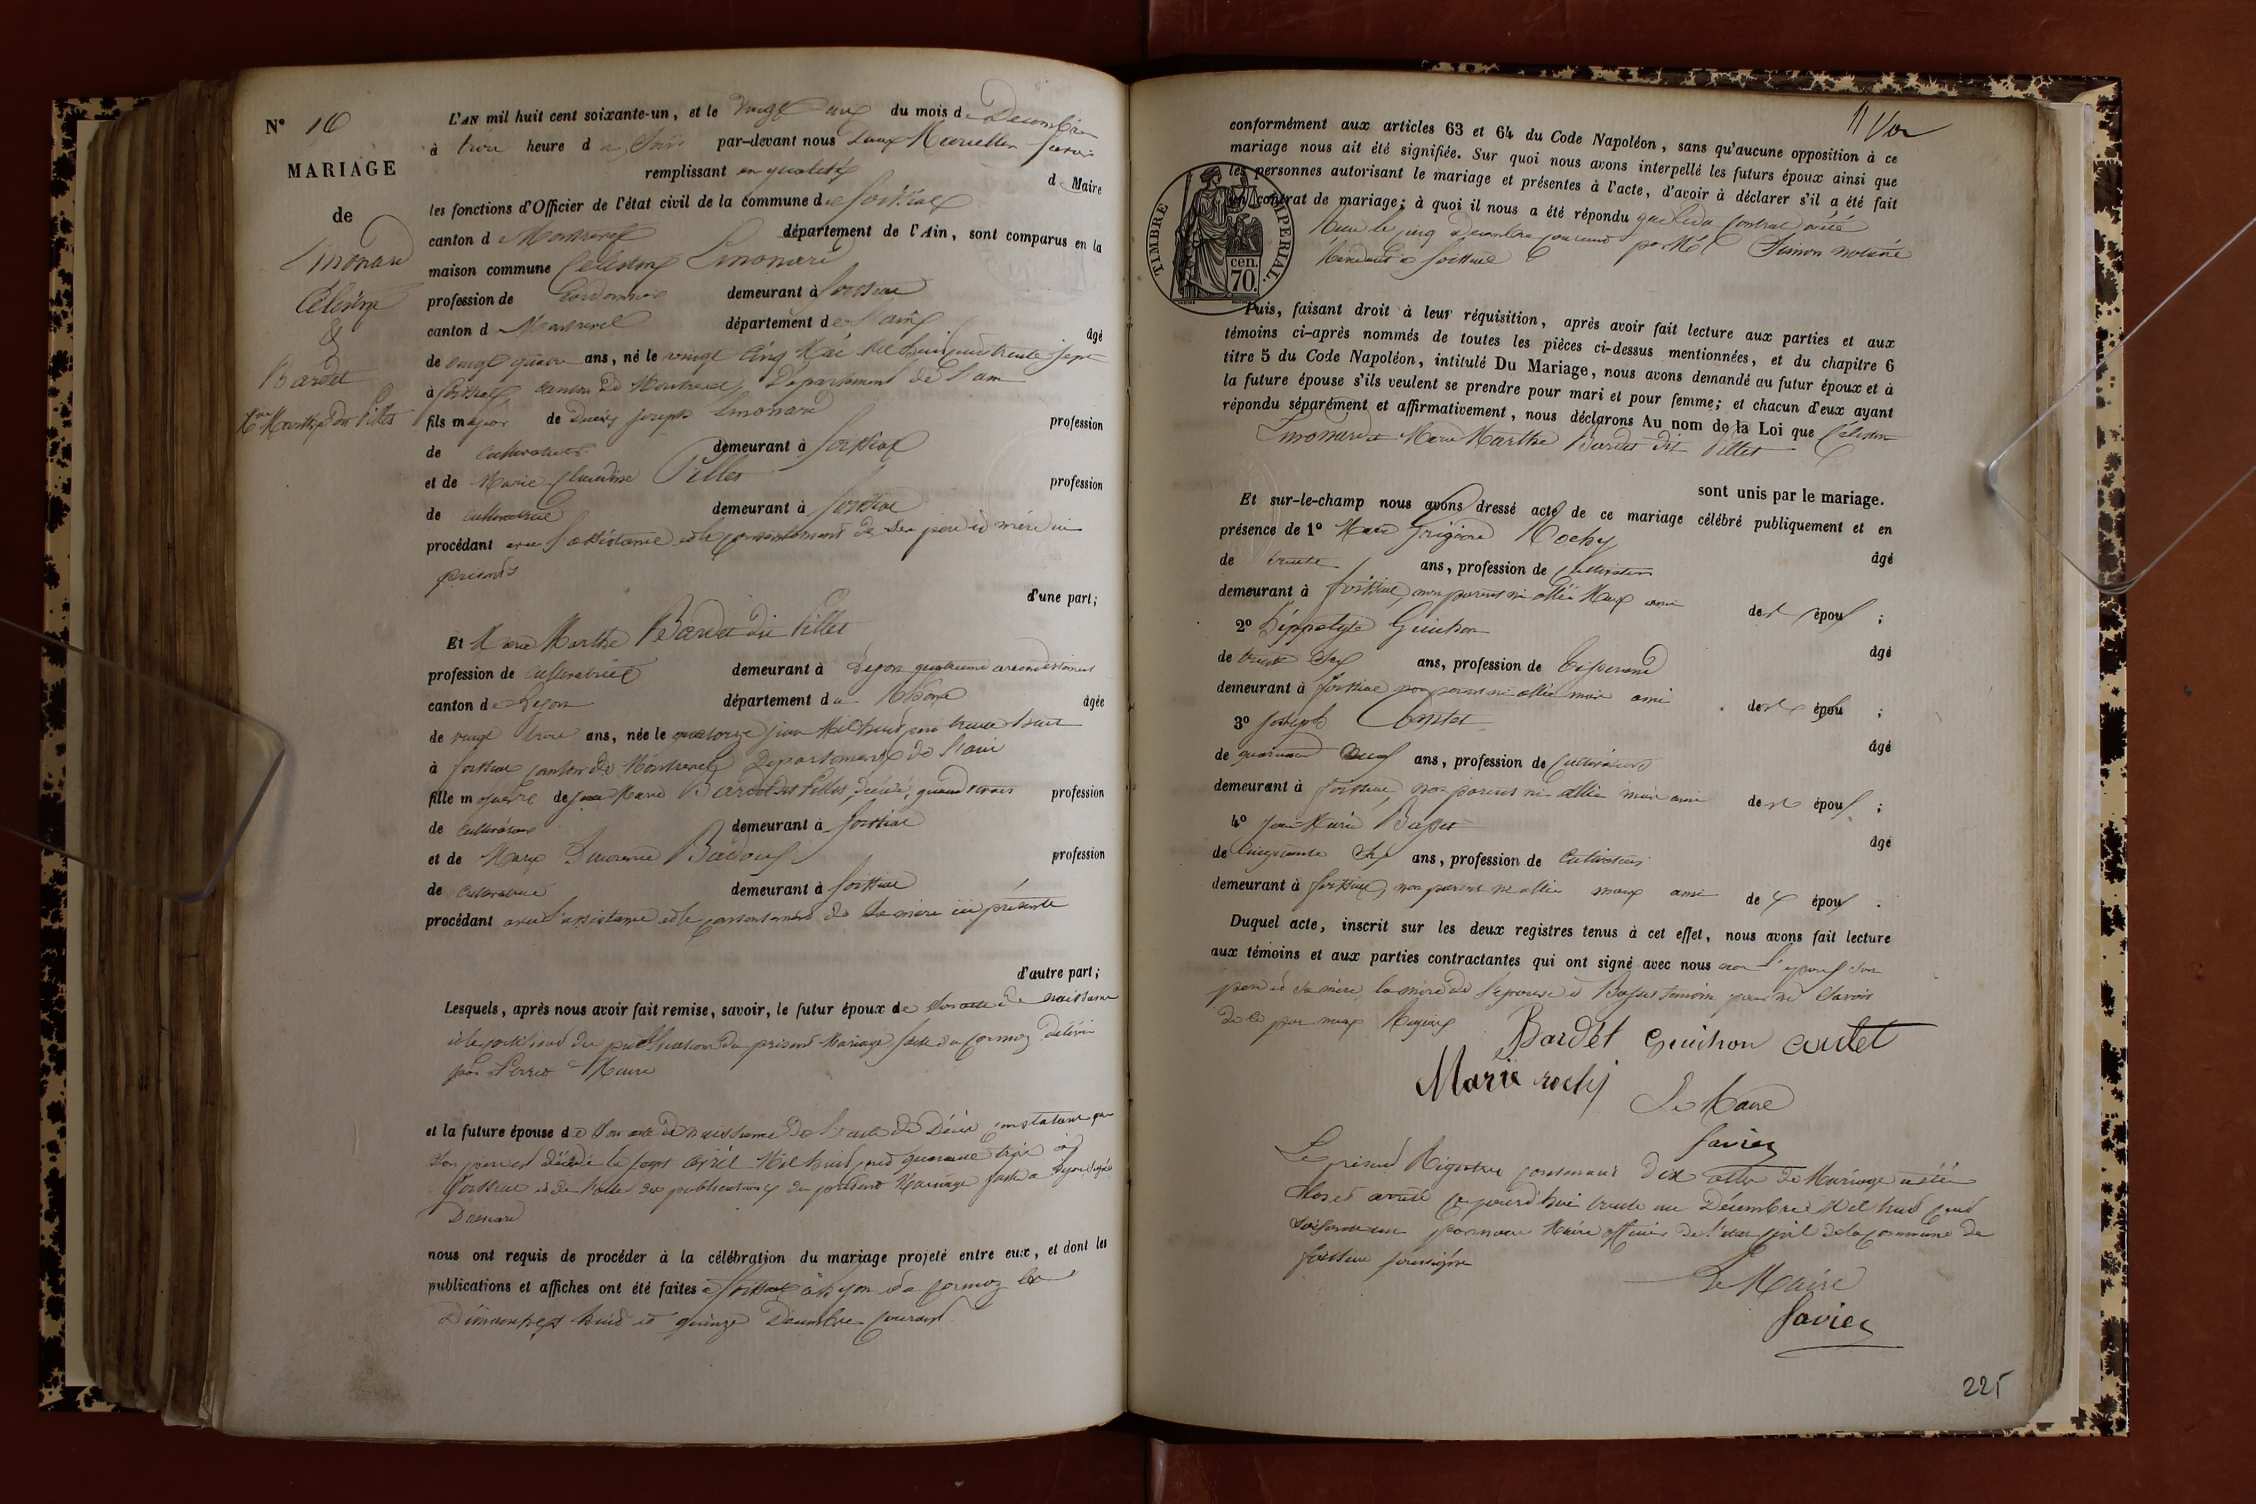 N° 10
MARIAGE
de
Limonard
Célestin
&
Bardet
Marthe dit Pillet
L'AN mil huit cent soixante-un, et le vingt du mois de Décembre
à trois heure du Soir par-devant nous Favier
remplissant en qualité de Maire
les fonctions d'Officier de l'état civil de la commune de Foissiat
canton de Montrevel département de l'Ain, sont comparus en la
maison commune Célestin Limonard
profession de Cordonnier demeurant à Foissiat
canton de Montrevel département de l'ain âgé
de vingt quatre ans, né le vingt cinq Mai Mil huit cent trente sept
à Foissiat canton de Montrevel Département de l'ain
fils majeur de Joseph Limonard profession
de Cultivateur demeurant à Foissiat
et de Marie Claudine Pillet profession
de Cultivatrice demeurant à Foissiat
procédant avec l'assistance et le consentement de ses père et mère ici
présents
d'une part;
Et Marie Marthe Bardet dit Pillet
profession de Cultivatrice demeurant à Lyon quatrième arrondissement
canton de Lyon département du Rhône âgée
de vingt trois ans, née le quatorze juin Mil huit cent trente huit
à Foissiat canton de Montrevel Département de l'ain
fille majeure de Jean Marie Bardet dit Pillet, décédé, quand vivait profession
de Cultivateur demeurant à Foissiat
et de Marie Laurence profession
de Cultivatrice demeurant à Foissiat
procédant avec l'assistance et le consentement de sa mère ici présente
d'autre part;
Lesquels, après nous avoir fait remise, savoir, le futur époux de son acte de naissance
et le certificat de publication du présent Mariage faite à Cormoz délivré
par Perret Maire
et la future épouse de son acte de naissance de l'acte de Décès constatant que
son père est décédé le sept avril Mil huit cent quarante trois à
Foissiat et de l'acte des publications du présent Mariage faite à Lyon signé
nous ont requis de procéder à la célébration du mariage projeté entre eux, et dont les
publications et affiches ont été faites à Foissiat à Lyon et à Cormoz les
Dimanches huit et quinze Décembre Courant
conformément aux articles 63 et 64 du Code Napoléon, sans qu'aucune opposition à ce
mariage nous ait été signifiée. Sur quoi nous avons interpellé les futurs époux ainsi que
les personnes autorisant le mariage et présentes à l'acte, d'avoir à déclarer s'il a été fait
un contrat de mariage; à quoi il nous a été répondu que le contrat a été
reçu le cinq Décembre courant par Me Simon notaire
résidant à Foissiat
TIMBRE IMPERIAL.
cen.
70.
Puis, faisant droit à leur réquisition, après avoir fait lecture aux parties et aux
témoins ci-après nommés de toutes les pièces ci-dessus mentionnées, et du chapitre 6
titre 5 du Code Napoléon, intitulé Du Mariage, nous avons demandé au futur époux et à
la future épouse s'ils veulent se prendre pour mari et pour femme; et chacun d'eux ayant
répondu séparément et affirmativement, nous déclarons Au nom de la Loi que Célestin
Limonard et Marie Marthe Bardet dit Pillet
sont unis par le mariage.
Et sur-le-champ nous avons dressé acte de ce mariage célébré publiquement et en
présence de 1° Marie Grégoire Rochy âgé
de trente ans, profession de Cultivateur
demeurant à Foissiat, non parent ni allié Mais ami des époux ;
2° Hippolyte Guichon âgé
de trente six ans, profession de Tisserand
demeurant à Foissiat non parent ni allié mais ami des époux ;
3° Joseph Coutet âgé
de quarante ans, profession de Cultivateur
demeurant à Foissiat, non parent ni allié mais ami des époux ;
4° Jean Marie Basset âgé
de cinquante six ans, profession de Cultivateur
demeurant à Foissiat, non parent ni allié mais ami des époux .
Duquel acte, inscrit sur les deux registres tenus à cet effet, nous avons fait lecture
aux témoins et aux parties contractantes qui ont signé avec nous non l'époux son
père et sa mère, la mère de l'épouse et Basset témoin pour ne savoir
de ce par nous Requis
Bardet Guichon coutet
Marie rochy
Le Maire
Favier
Le présent Registre contenant dix actes de Mariage a été
clos et arrêté ce jourd'hui trente un Décembre Mil huit cent
soixante un par nous Maire officier de l'état Civil de la Commune de
Foissiat soussigné
Le Maire
Favier
225